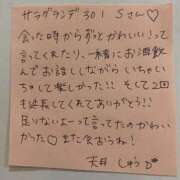 サラグランデ301 Sさん♡
会った時からずっとかわいい!って
言ってくれたり、一緒にお酒飲
んでお話しながら いちゃいち
ゃして楽しかった!! そして2回
も延長してくれてありがとう!!
足りないよーって言ってたのかわい
かった♡ また会おうね!
天井 しゅう